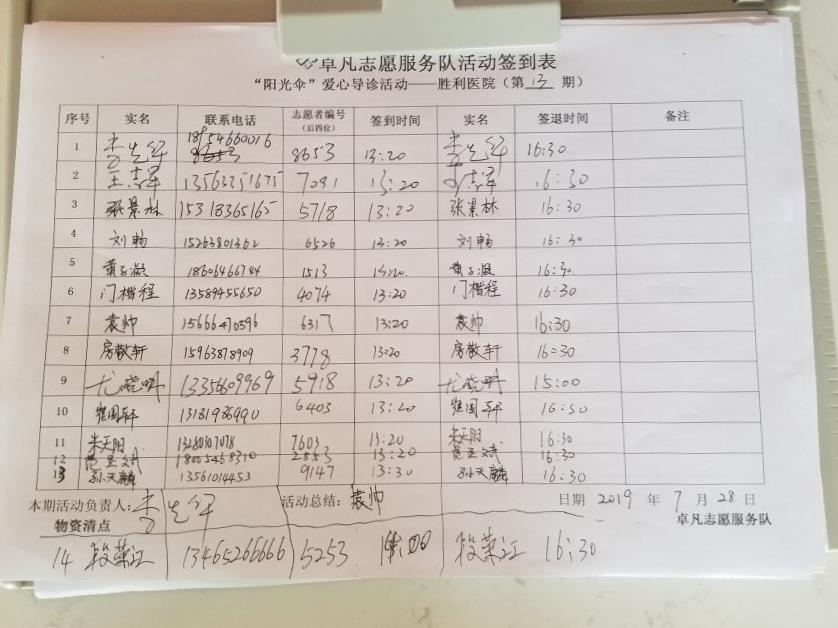 卓凡志愿服务队活动签到表
“阳光伞”爱心导诊活动——胜利医院（第 13 期）
序号 实名 联系电话 志愿者编号（后四位） 签到时间 实名 签退时间 备注
1 李先纾 18954660016 8653 13:20 李先纾 16:30
2 王志军 13563251675 7091 13:20 王志军 16:30
3 张景林 15318365165 5718 13:20 张景林 16:30
4 刘畅 15263801362 6526 13:20 刘畅 16:30
5 黄子凝 18606466744 1513 13:20 黄子凝 16:30
6 门楷程 13589455650 4074 13:20 门楷程 16:30
7 袁帅 15666470596 6317 13:20 袁帅 16:30
8 房敬轩 15963878909 3778 13:20 房敬轩 16:30
9 尤晓明 13356609969 5918 13:20 尤晓明 15:00
10 国轩 13181986990 6403 13:20 国轩 16:30
11 朱天阳 7603 13:20 朱天阳 16:30
12 18005468310 2853 13:20 16:30
13 孙天麟 13561014453 9147 13:30 孙天麟 16:30
本期活动负责人: 李先纾 活动总结: 袁帅 日期 2019 年 7 月 28 日
物资清点 卓凡志愿服务队
14 段荣江 13465266666 5253 段荣江 16:30